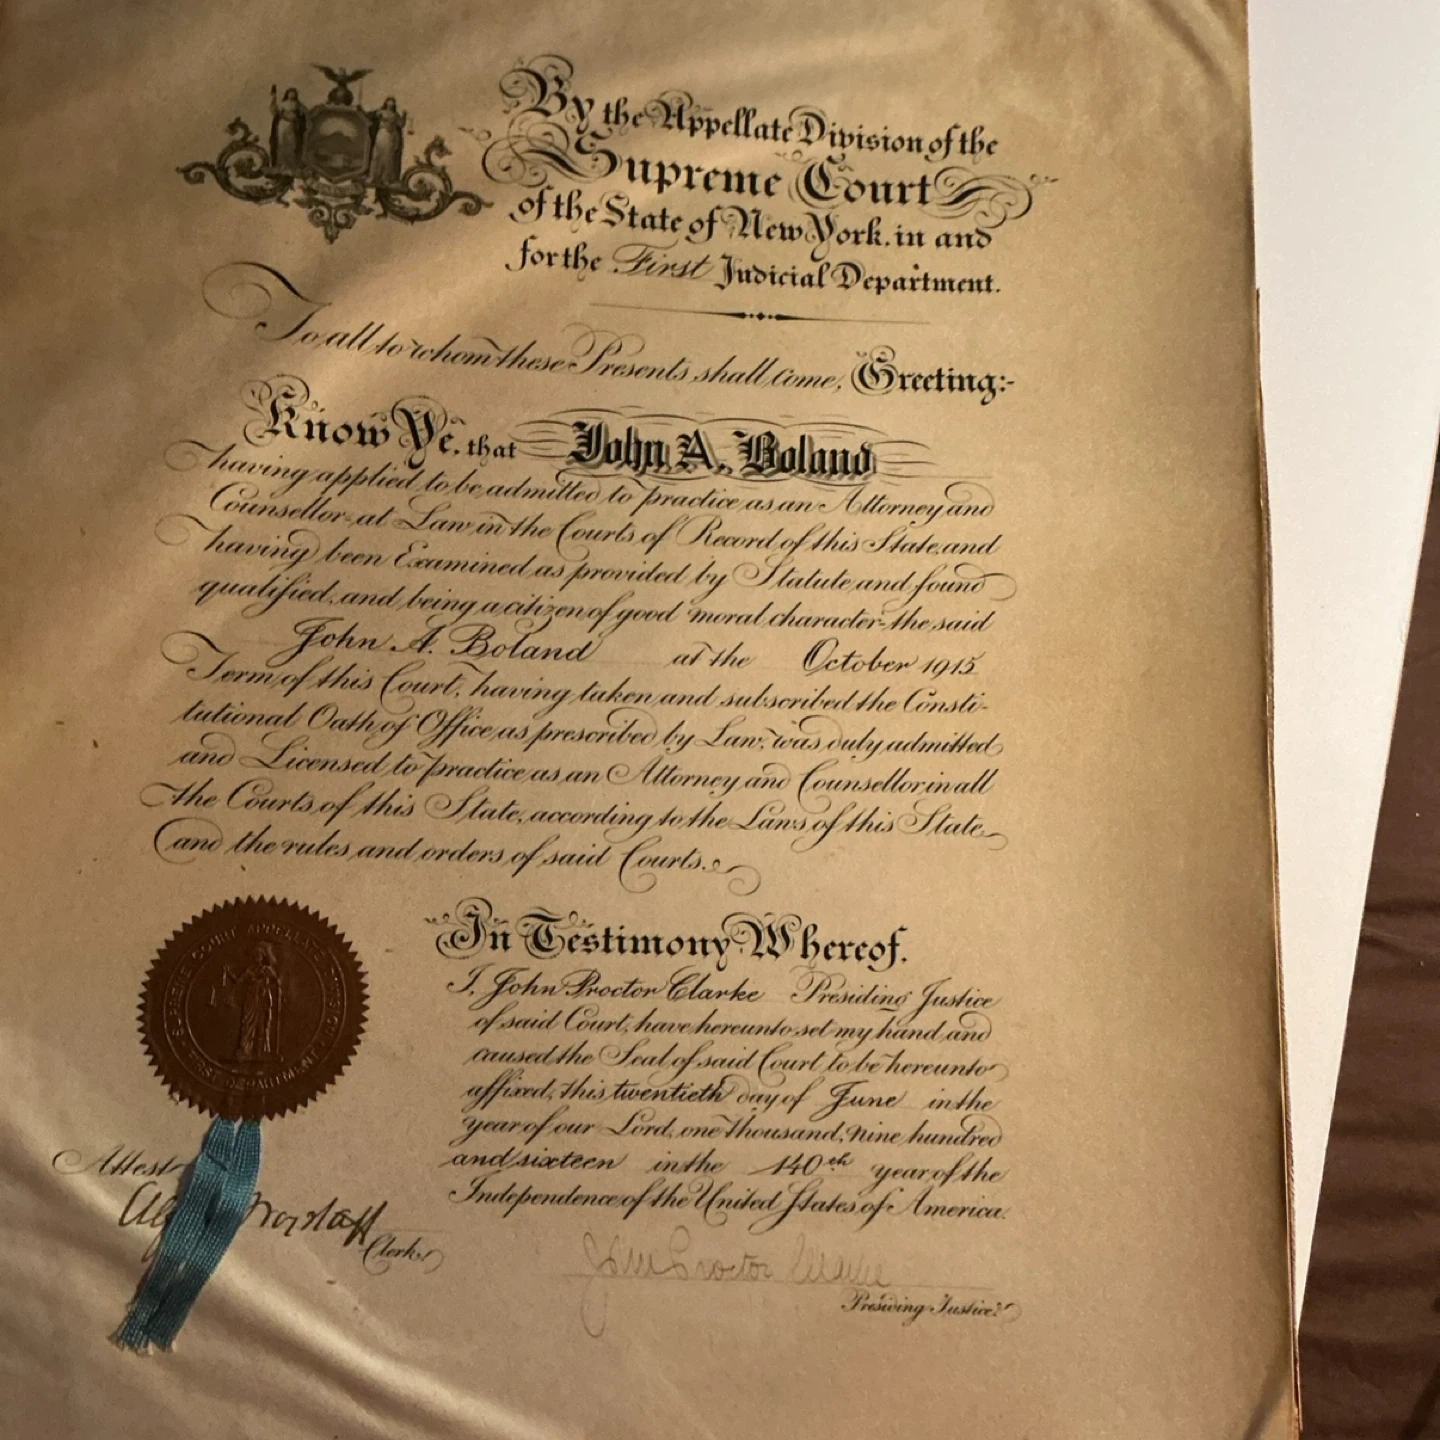 By the Appellate Division of the
Supreme Court
of the State of New York, in and
for the First Judicial Department.
To all to whom these Presents shall come, Greeting:-
Know Ye, that John A. Boland
having applied to be admitted to practice as an Attorney and
Counsellor-at Law in the Courts of Record of this State, and
having been Examined as provided by Statute and found
qualified, and being a citizen of good moral character, the said
John A. Boland at the October 1915
Term of this Court, having taken and subscribed the Consti-
tutional Oath of Office as prescribed by Law, was duly admitted
and Licensed to practice as an Attorney and Counsellor in all
the Courts of this State, according to the Laws of this State
and the rules and orders of said Courts.
In Testimony Whereof,
I, John Proctor Clarke Presiding Justice
of said Court, have hereunto set my hand and
caused the Seal of said Court to be hereunto
affixed, this twentieth day of June in the
year of our Lord, one thousand, nine hundred
and sixteen in the 140th year of the
Independence of the United States of America.
SUPREME COURT APPELLATE DIVISION
FIRST DEPARTMENT
Attest
Clerk.
John Proctor Clarke
Presiding Justice